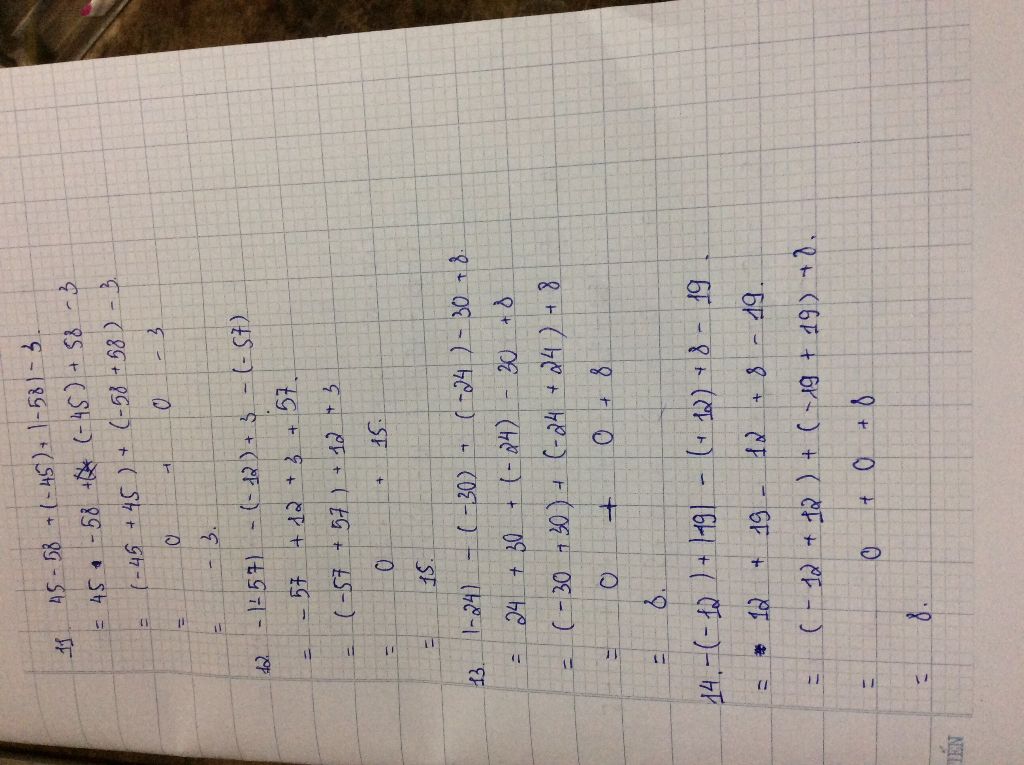 11. 45 - 58 + (-45) + |-58| - 3.
= 45 - 58 + (-45) + 58 - 3
= (-45 + 45) + (-58 + 58) - 3.
= 0 + 0 - 3
= -3.
12. -|-57| - (-12) + 3 - (-57)
= -57 + 12 + 3 + 57.
= (-57 + 57) + 12 + 3
= 0 + 15.
= 15.
13. |-24| - (-30) + (-24) - 30 + 8.
= 24 + 30 + (-24) - 30 + 8
= (-30 + 30) + (-24 + 24) + 8
= 0 + 0 + 8
= 8.
14. -(-12) + |19| - (+12) + 8 - 19.
= 12 + 19 - 12 + 8 - 19.
= (-12 + 12) + (-19 + 19) + 8.
= 0 + 0 + 8
= 8.